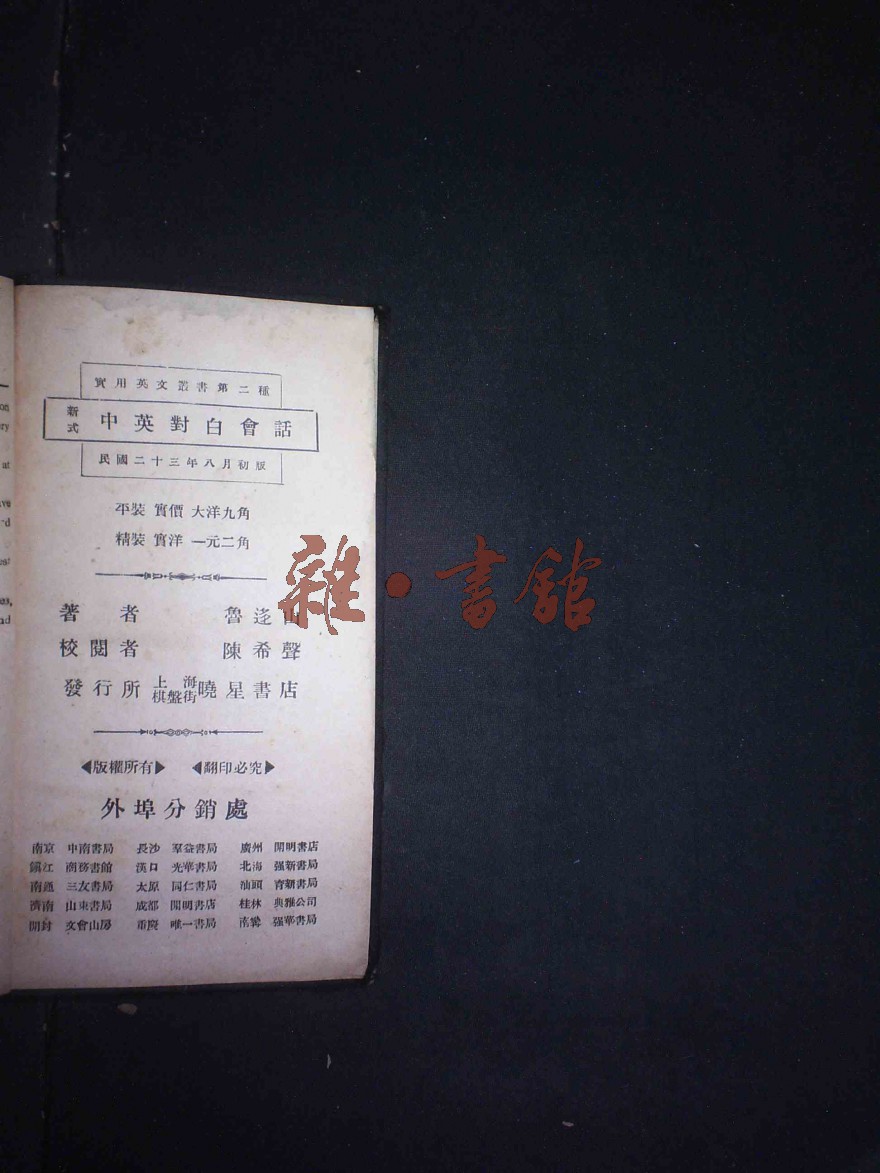 on
ery
at
ave
es:
實用英文叢書第二種
新式 中英對白會話
民國二十三年八月初版
平裝 實價 大洋九角
精裝 實洋 一元二角
著者 魯逄山
校閱者 陳希聲
發行所 上海棋盤街 曉星書店
◀版權所有▶ ◀翻印必究▶
外埠分銷處
南京 中南書局 長沙 羣益書局 廣州 開明書店
鎮江 商務書館 漢口 光華書局 北海 强新書局
南通 三友書局 太原 同仁書局 汕頭 育新書局
濟南 山東書局 成都 開明書店 桂林 典雅公司
開封 文會山房 重慶 唯一書局 南寧 强華書局
雜·書館